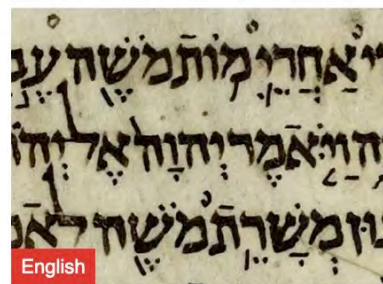 י אַחֲרֵי מוֹת מֹשֶׁה עֶב
ה וַיֹּאמֶר יְהוָה אֶל יְהוֹ
וּן מְשָׁרֵת מֹשֶׁה לֵאמ
English